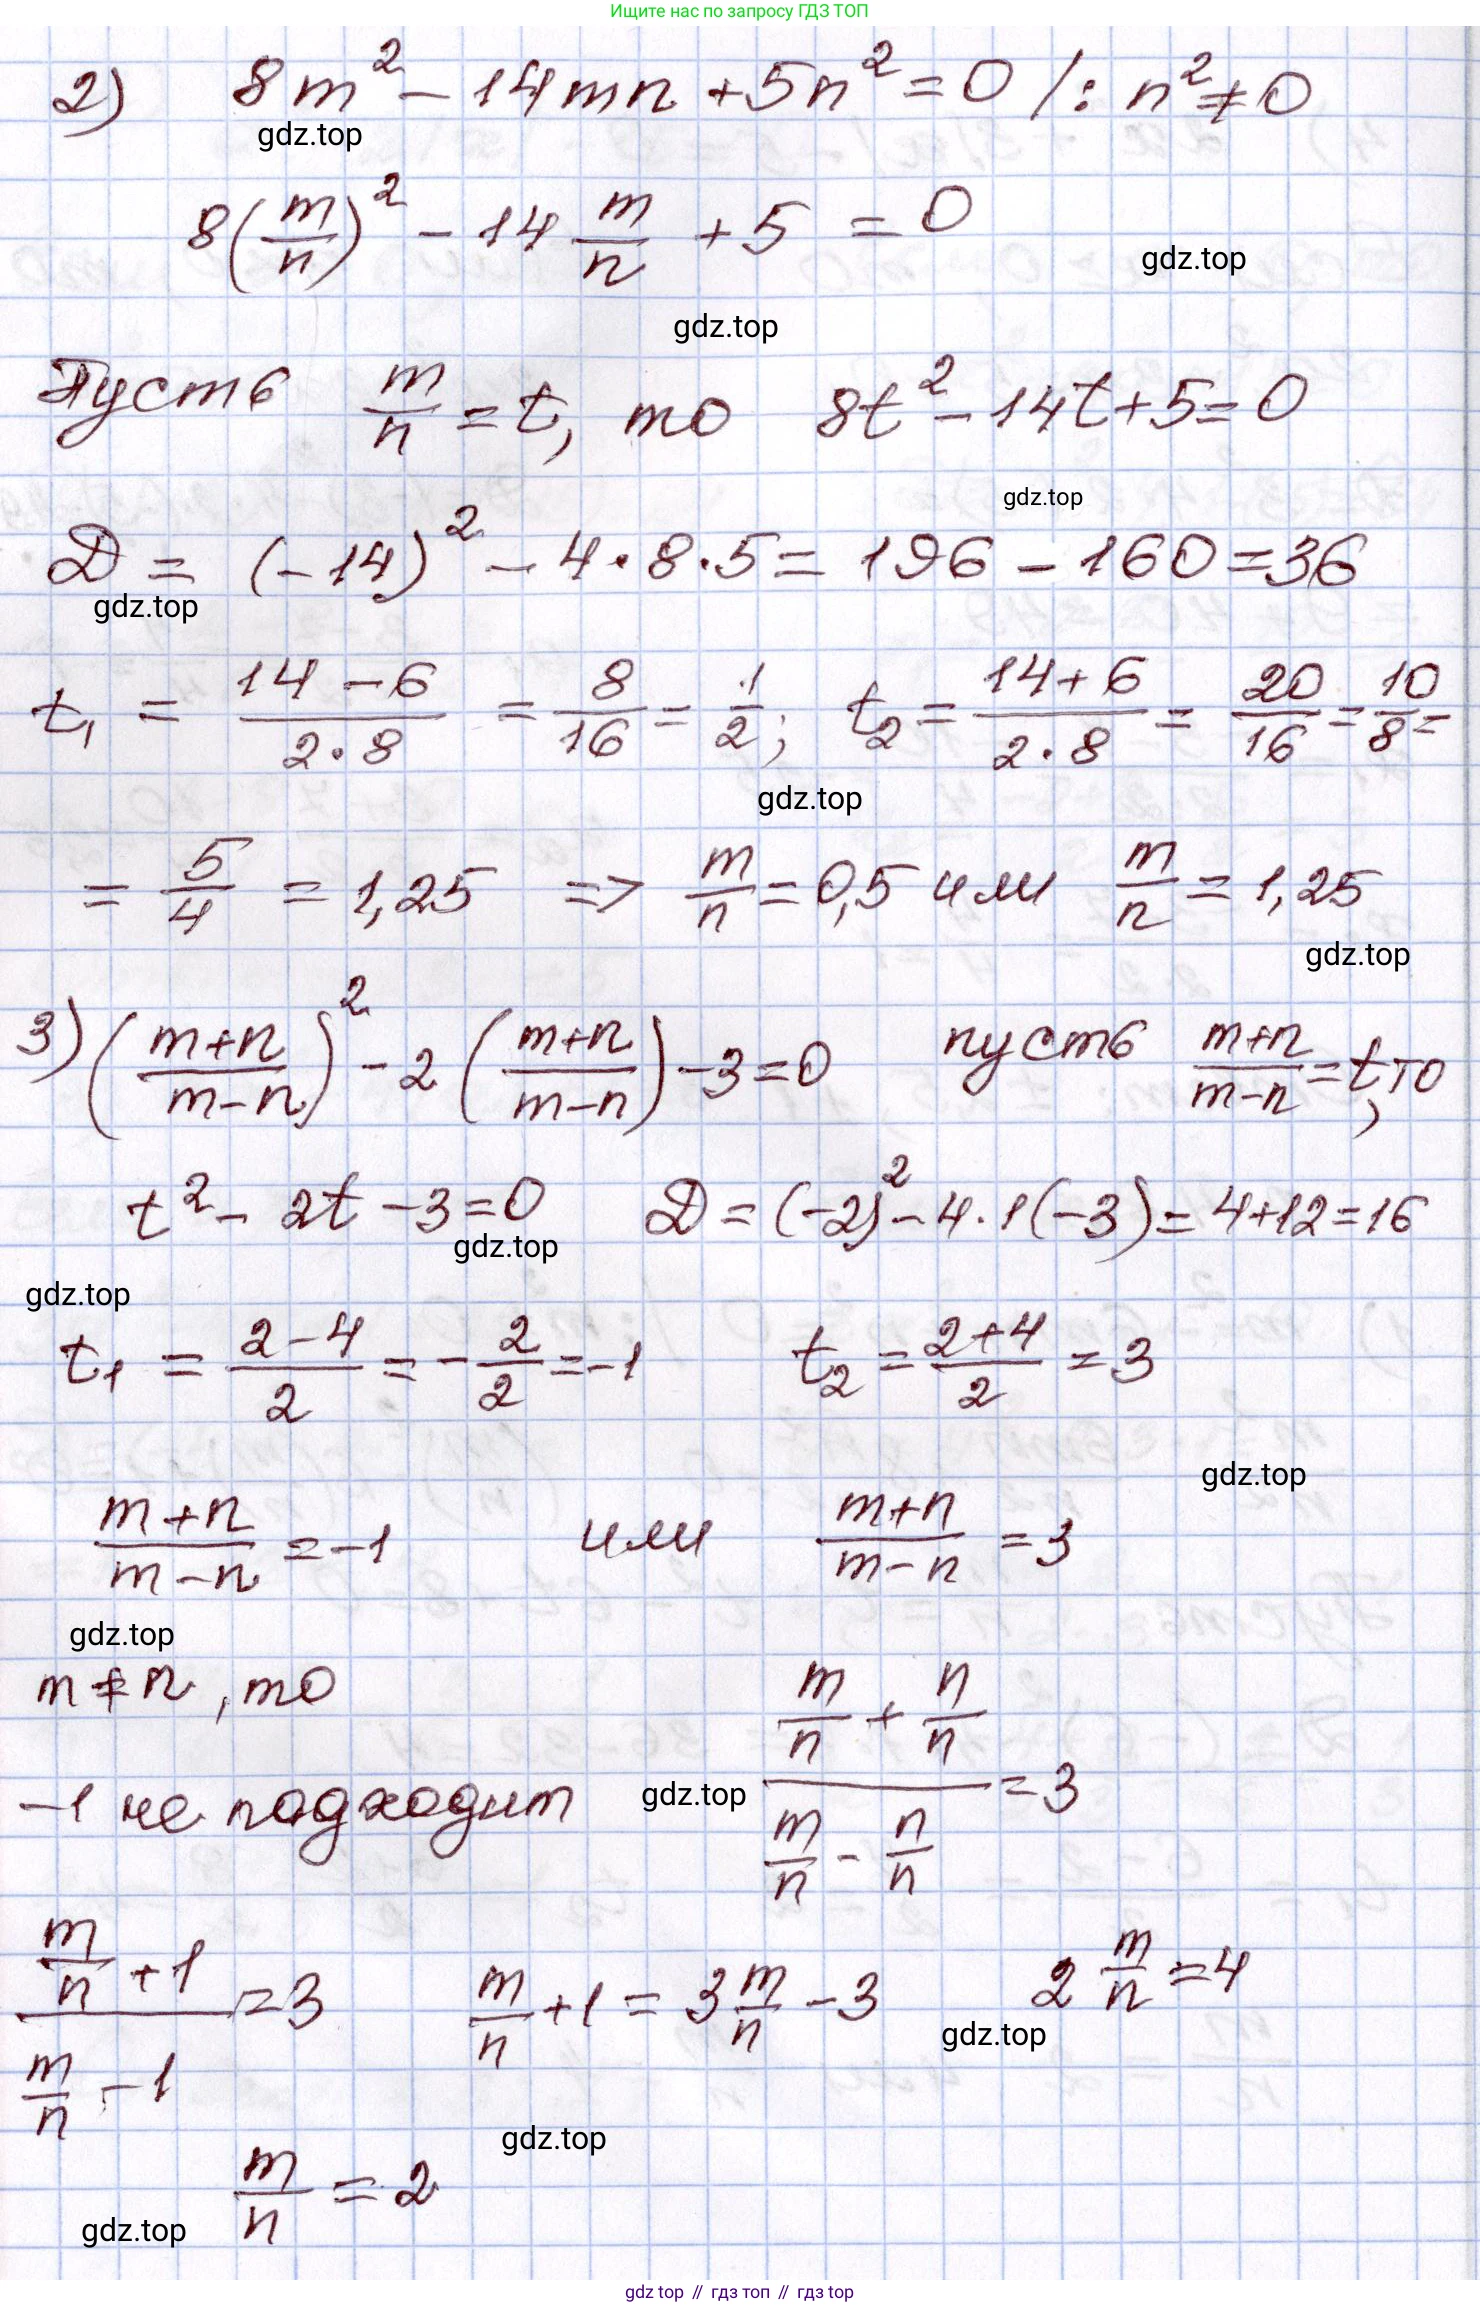 Ищите нас по запросу ГДЗ ТОП
2) 8m² - 14mn + 5n² = 0 /: n² ≠ 0
gdz.top
8(m/n)² - 14 m/n + 5 = 0
gdz.top
gdz.top
Пусть m/n = t, то 8t² - 14t + 5 = 0
gdz.top
D = (-14)² - 4·8·5 = 196 - 160 = 36
gdz.top
t₁ = (14 - 6)/(2·8) = 8/16 = 1/2; t₂ = (14 + 6)/(2·8) = 20/16 = 10/8 =
gdz.top
= 5/4 = 1,25 => m/n = 0,5 или m/n = 1,25
gdz.top
3) ((m+n)/(m-n))² - 2((m+n)/(m-n)) - 3 = 0 пусть (m+n)/(m-n) = t, то
t² - 2t - 3 = 0 D = (-2)² - 4·1(-3) = 4 + 12 = 16
gdz.top
gdz.top
t₁ = (2 - 4)/2 = -2/2 = -1 t₂ = (2 + 4)/2 = 3
gdz.top
(m+n)/(m-n) = -1 или (m+n)/(m-n) = 3
gdz.top
m ≠ n, то
-1 не подходит
gdz.top
(m/n + n/n)/(m/n - n/n) = 3
(m/n + 1)/(m/n - 1) = 3 m/n + 1 = 3 m/n - 3 2 m/n = 4
gdz.top
gdz.top
m/n = 2
gdz.top
gdz top // гдз топ // gdz top